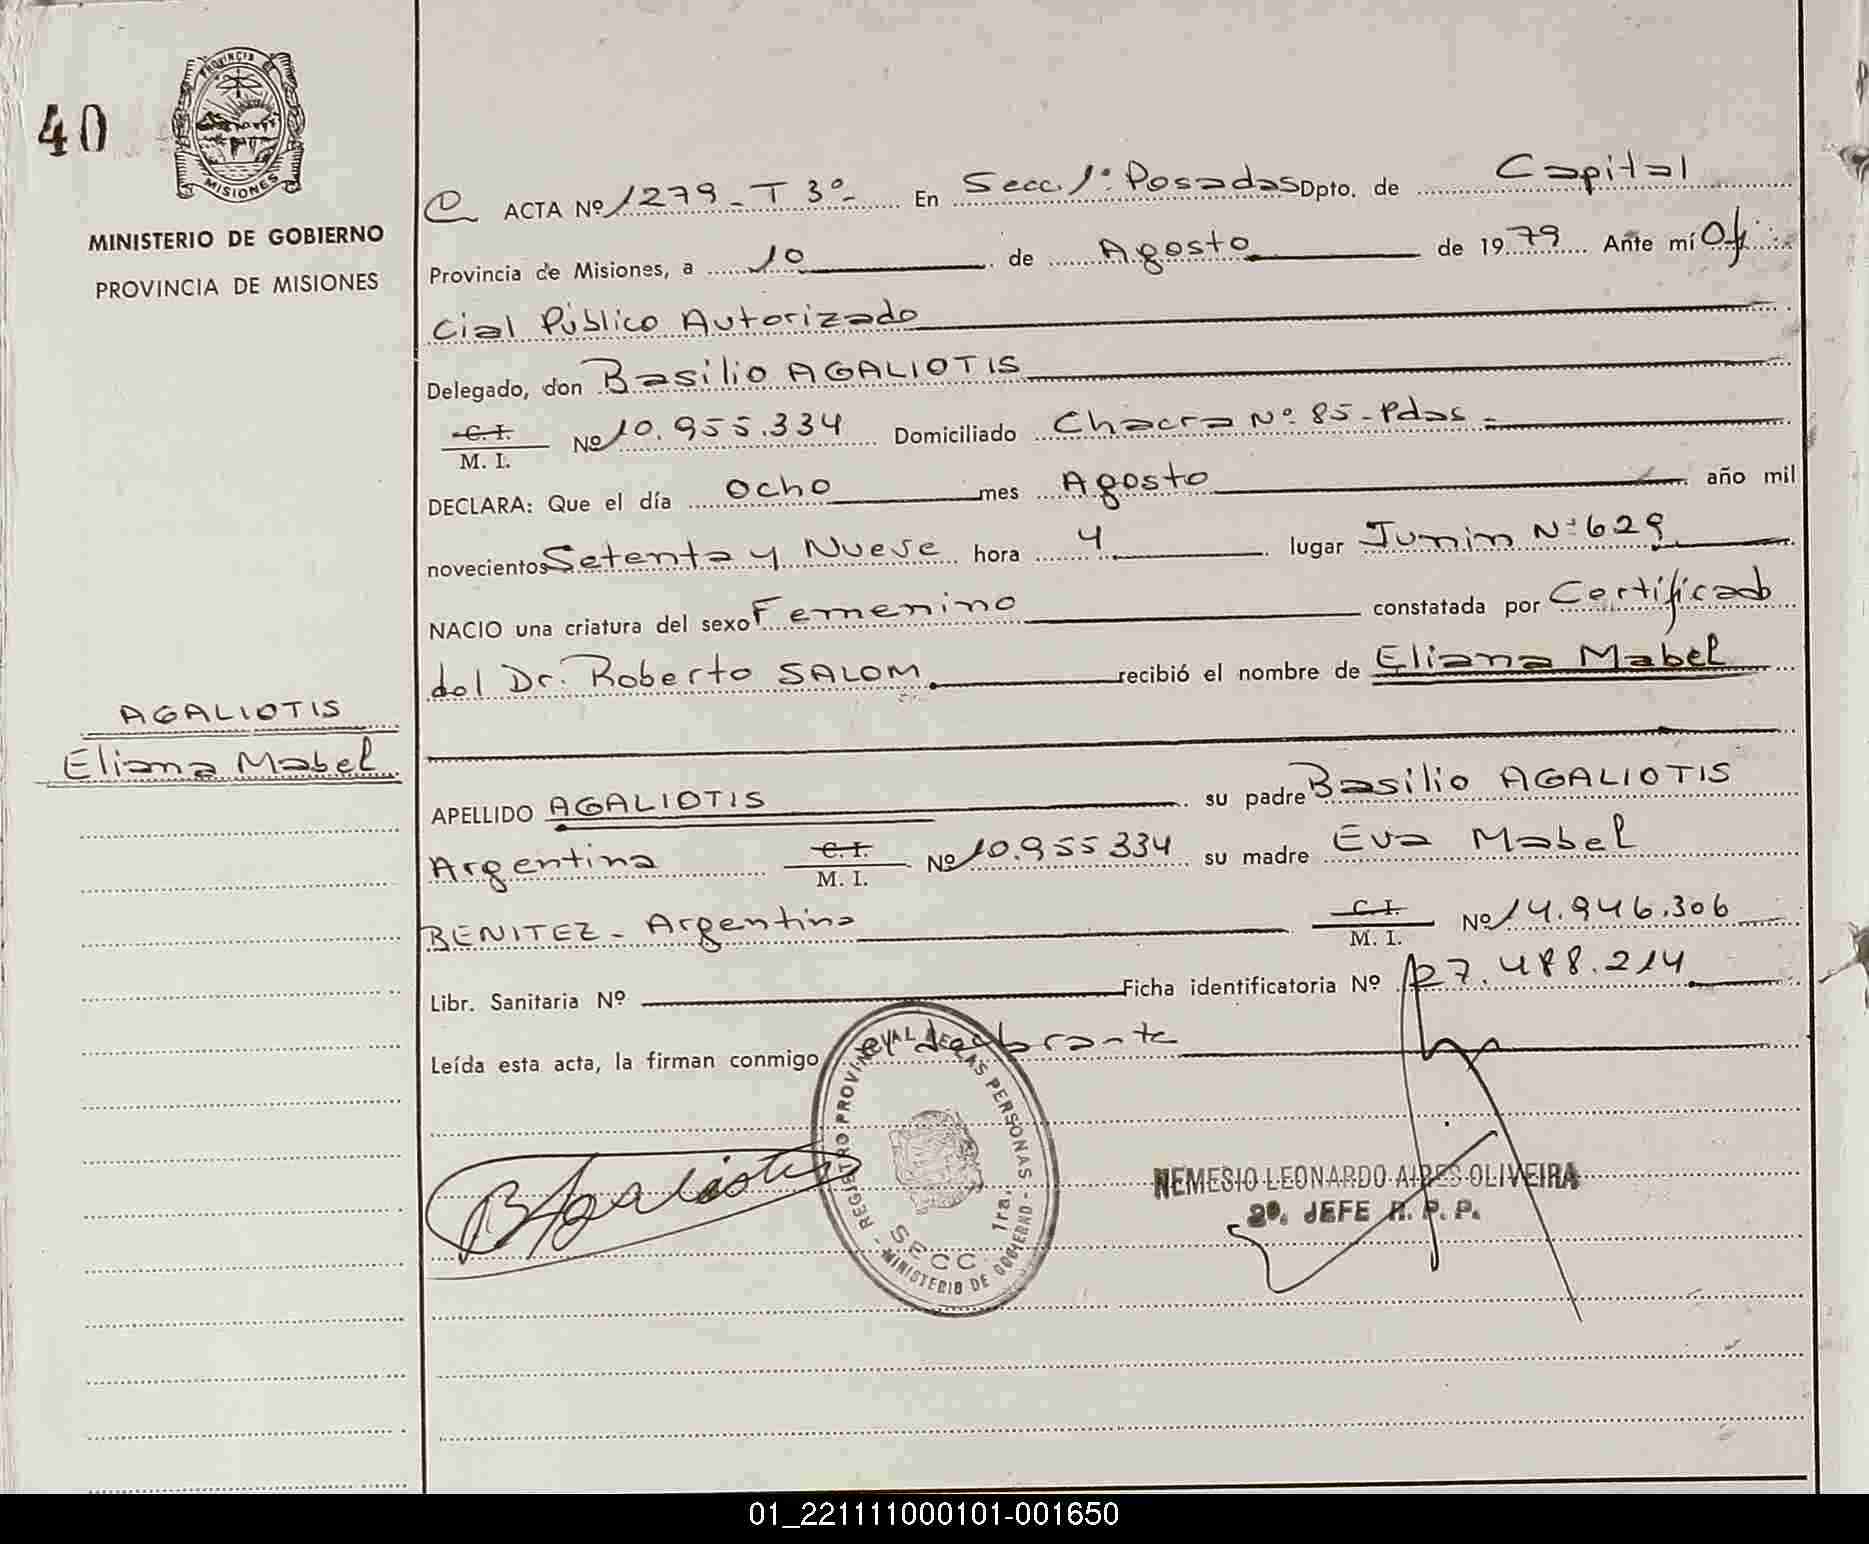 40
PROVINCIA DE
MISIONES
MINISTERIO DE GOBIERNO
PROVINCIA DE MISIONES
AGALIOTIS
Eliana Mabel
ACTA Nº 1279 - T 3º - En Secc. 1º Posadas Dpto. de Capital
Provincia de Misiones, a 10 de Agosto de 1979 Ante mí Ofi
cial Público Autorizado
Delegado, don Basilio AGALIOTIS
C. I.
M. I. Nº 10.955.334 Domiciliado Chacra Nº 85 - Pdas -
DECLARA: Que el día ocho mes Agosto año mil
novecientos Setenta y Nueve hora 4 lugar Junin Nº 629
NACIO una criatura del sexo Femenino constatada por Certificado
del Dr. Roberto SALOM recibió el nombre de Eliana Mabel
APELLIDO AGALIOTIS su padre Basilio AGALIOTIS
Argentina C. I. M. I. Nº 10.955334 su madre Eva Mabel
BENITEZ - Argentina C. I. M. I. Nº 14.946.306
Libr. Sanitaria Nº Ficha identificatoria Nº 27.488.214
Leída esta acta, la firman conmigo el declarante
REGISTRO PROVINCIAL DE LAS PERSONAS - MINISTERIO DE GOBIERNO -
SECC. 1ra.
B Agaliotis
NEMESIO LEONARDO AIRES OLIVEIRA
2º. JEFE R. P. P.
01_221111000101-001650